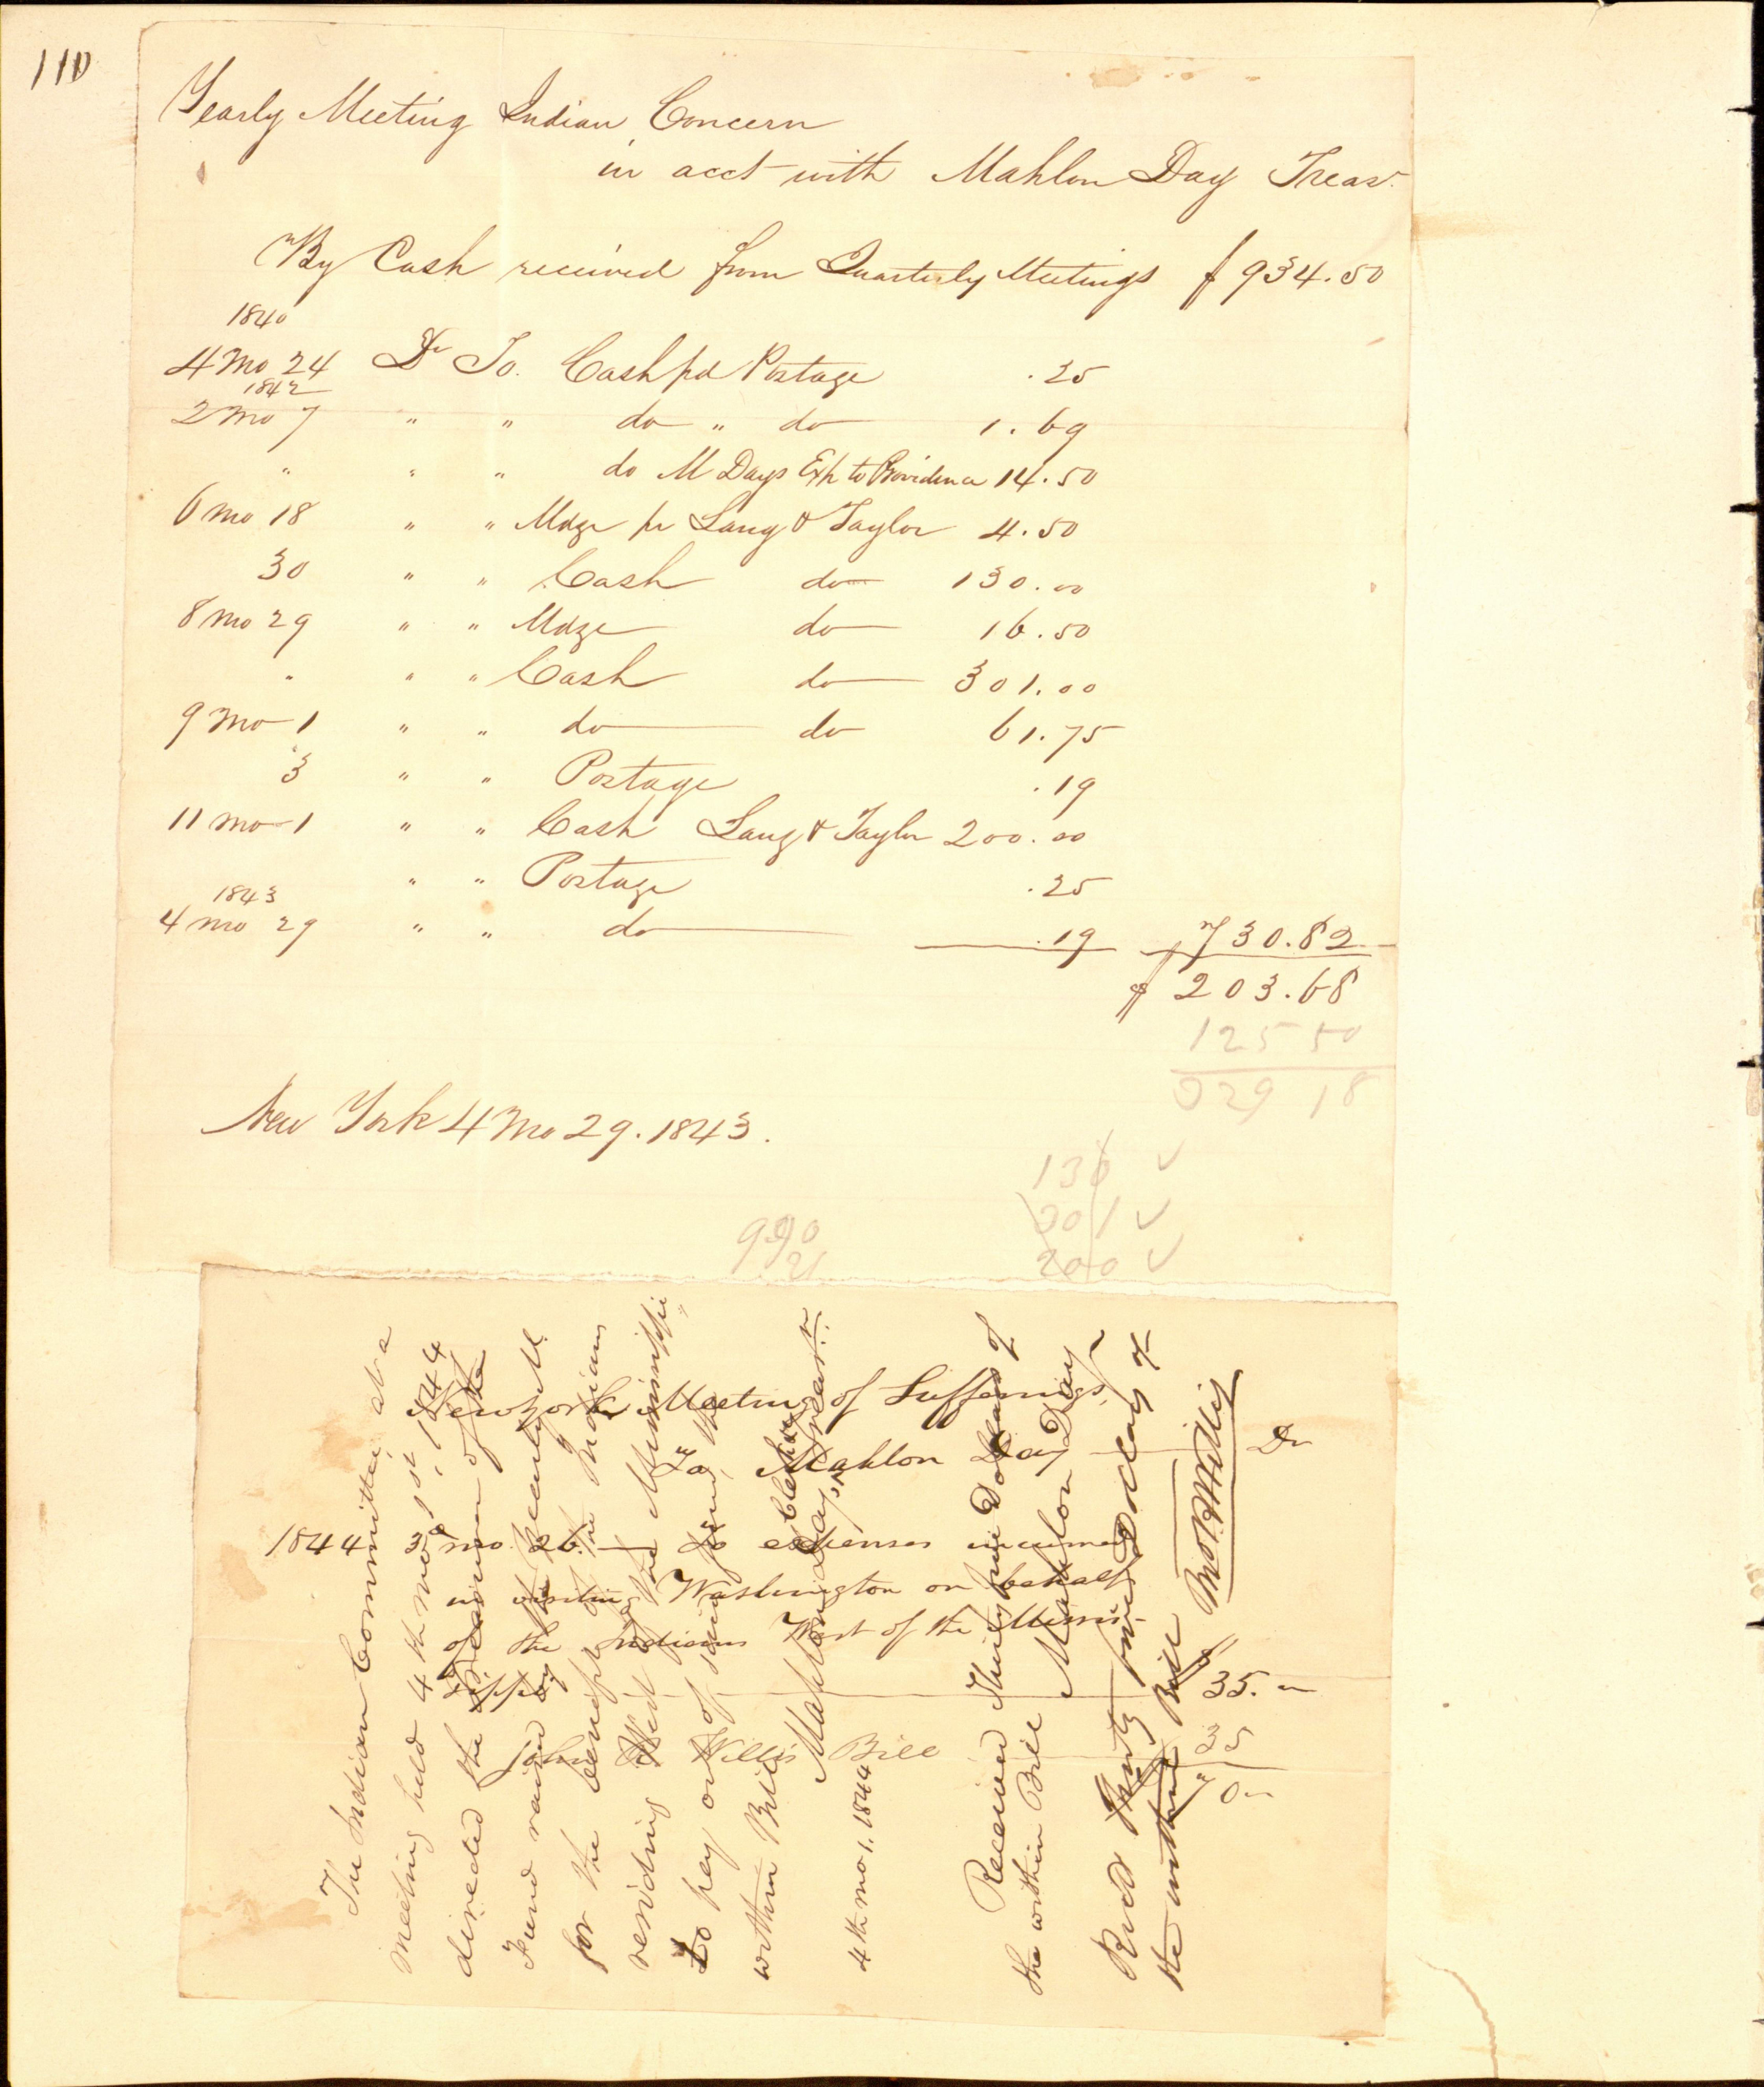 110
Yearly Meeting Indian Concern
in acct with Mahlon Day Treasr.
By Cash received from Quarterly Meetings $ 934.50
1840
4 Mo 24 Dr To. Cash pd Postage .25
1842
2 Mo 7 " " do " do 1.69
" " " do M Days Exp to Providence 14.50
6 mo 18 " " Mdze pr Lang & Taylor 4.50
30 " " Cash do 130.00
8 mo 29 " " Mdze do 16.50
" " " Cash do 301.00
9 mo 1 " " do do 61.75
3 " " Postage .19
11 mo 1 " " Cash Lang & Taylor 200.00
" " Postage .25
1843
4 mo 29 " " do .19 730.82
$ 203.68
125 50
329 18
New York 4 Mo 29. 1843.
130 ✓
301 ✓
200 ✓
990
21
New York Meeting of Sufferings,
To Mahlon Day Dr
1844 3d mo. 26. To expenses incurred
in visiting Washington on behalf
of the Indians West of the Missis-
sippi $35.00
John Willis Bill 35
70
The Indian Committee at a
meeting held 4th mo 1st, 1844
directed the Treasurer of the
Fund raised by the Yearly M.
for the benefit of the Indians
residing West of the Mississippi
to pay out of said fund the
within Bill
Mahlon Day, Clerk
4th mo 1. 1844
Received Thirty five Dollars of
the within Bill Mahlon Day
Recd Thirty five Dolls of
the within Bill